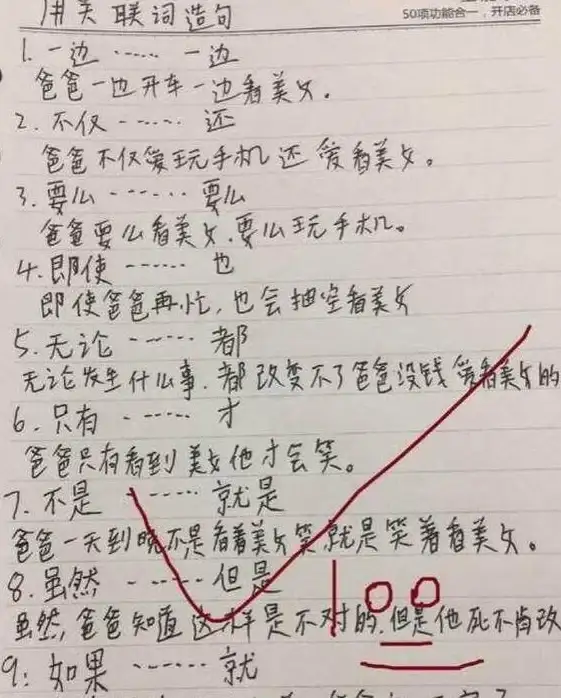 用关联词造句
50项功能合一，开店必备
1. 一边 …… 一边
爸爸一边开车一边看美女。
2. 不仅 …… 还
爸爸不仅爱玩手机还爱看美女。
3. 要么 …… 要么
爸爸要么看美女.要么玩手机。
4. 即使 …… 也
即使爸爸再忙,也会抽空看美女
5. 无论 …… 都
无论发生什么事.都改变不了爸爸没钱爱看美女的
6. 只有 …… 才
爸爸只有看到美女他才会笑。
7. 不是 …… 就是
爸爸一天到晚不是看着美女笑就是笑着看美女。
8. 虽然 …… 但是
虽然,爸爸知道这样是不对的.但是他死不肯改
100
9: 如果 …… 就